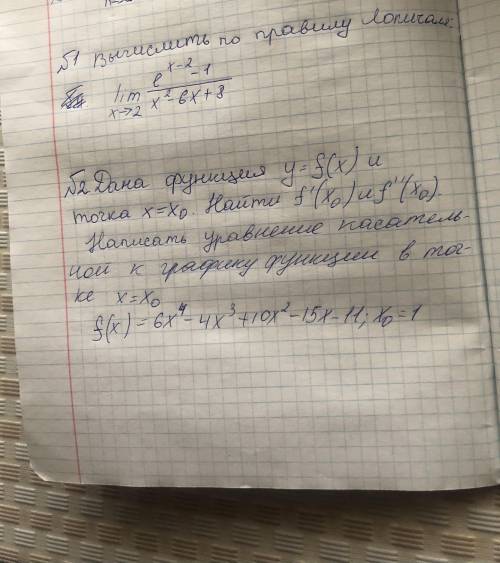 №1 Вычислить по правилу Лопиталя:
lim x→2 (e^(x-2) - 1) / (x² - 6x + 8)
№2 Дана функция y = f(x) и
точка x = x₀. Найти f'(x₀) и f''(x₀).
Написать уравнение касатель-
ной к графику функции в точ-
ке x = x₀
f(x) = 6x⁴ - 4x³ + 10x² - 15x - 11; x₀ = 1